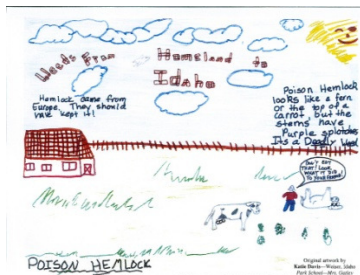 Weeds From Homeland to
Idaho
Hemlock came from
Europe. They should
have kept it!
Poison Hemlock
looks like a fern
or the top of a
carrot, but the
stems have
Purple splotches
It's a Deadly Weed
DON'T EAT
THAT! LOOK
WHAT IT DID
TO YOUR
POISON HEMLOCK
Original artwork by
Katie Davis—Weiser, Idaho
Park School—Mrs.